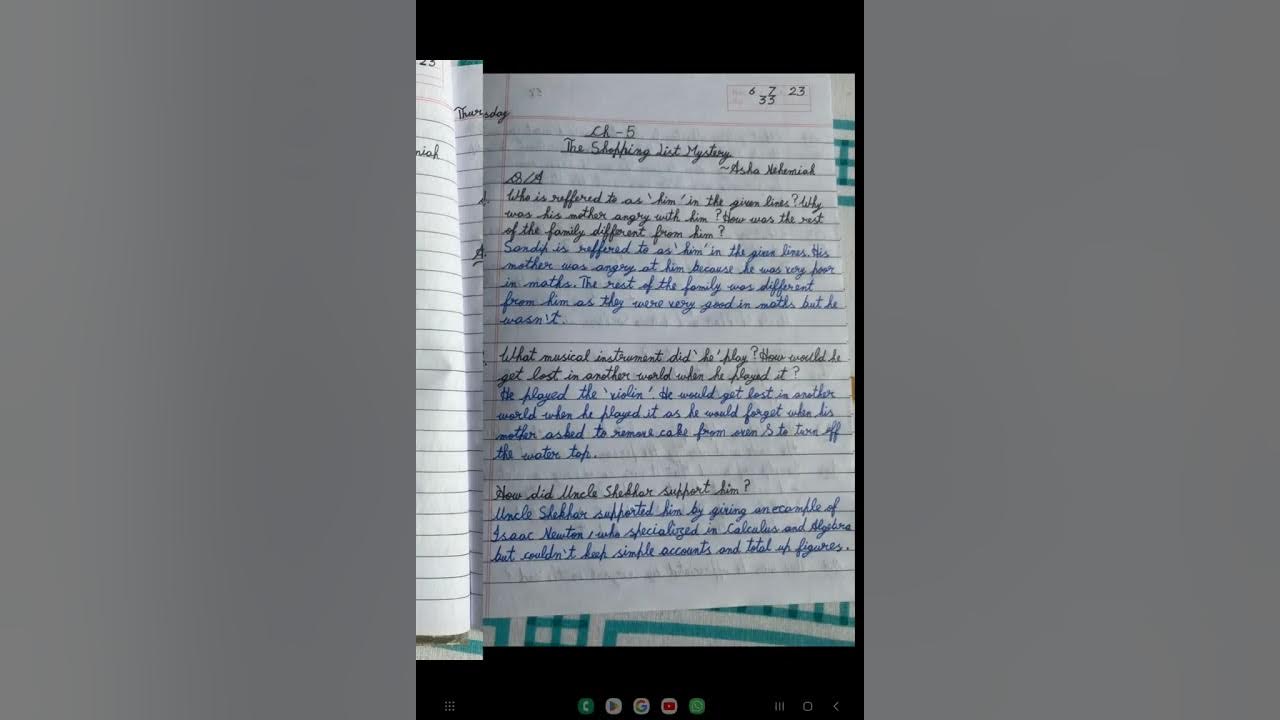 23
Thursday
niah
6 7 23
33
Ch - 5
The Shopping List Mystery
~Asha Nehemiah
Q/A
Who is reffered to as 'him' in the given lines? Why
was his mother angry with him? How was the rest
of the family different from him?
A. Sandip is reffered to as 'him' in the given lines. His
mother was angry at him because he was very poor
in maths. The rest of the family was different
from him as they were very good in maths but he
wasn't.
What musical instrument did 'he' play? How would he
get lost in another world when he played it?
He played the 'violin'. He would get lost in another
world when he played it as he would forget when his
mother asked to remove cake from oven & to turn off
the water tap.
How did Uncle Shekhar support him?
Uncle Shekhar supported him by giving an example of
Isaac Newton, who specialized in Calculus and Algebra
but couldn't keep simple accounts and total up figures.